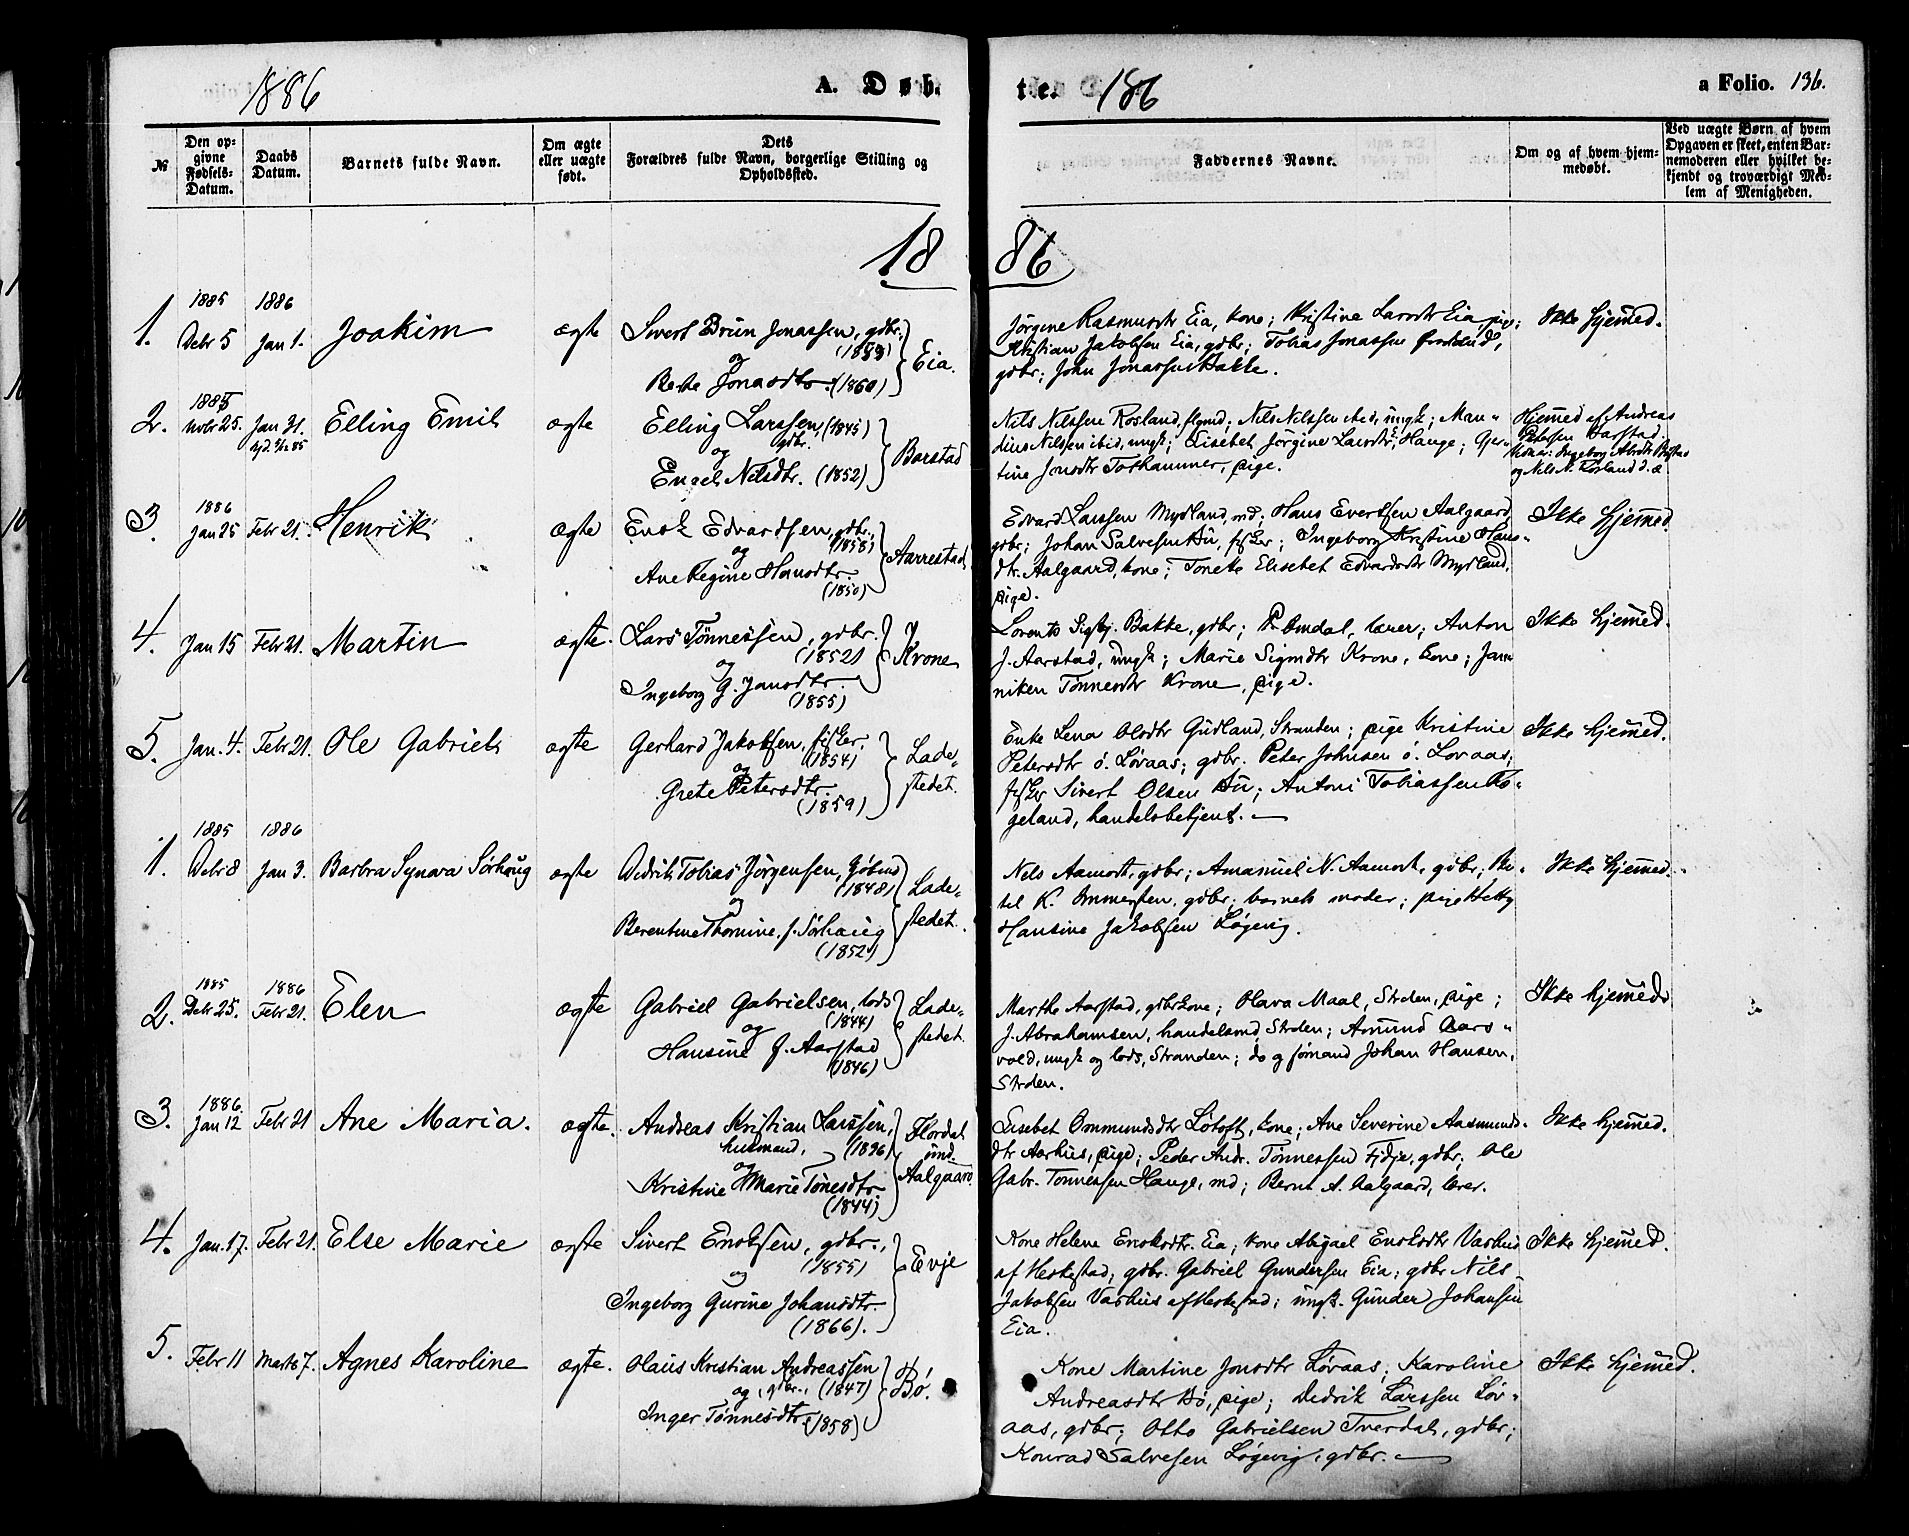 1886
A. Døb
te.
186
a Folio. 136.
№
Den opgivne Fødsels-Datum.
Daabs Datum.
Barnets fulde Navn.
Om ægte eller uægte født.
Dets Forældres fulde Navn, borgerlige Stilling og Opholdssted.
Faddernes Navne.
Om og af hvem hjemmedøbt.
Ved uægte Børn af hvem Opgaven er skeet, enten Barnemoderen eller hvilket bekjendt og troværdigt Medlem af Menigheden.
18 86
1. 1885 Debr 5 1886 Jan 1. Joakim ægte Sivert Brun Jonassen, gdbr.
og
Jonasdtr. (1860) Eia.
Jørgine Rasmusdtr Eia, kone; Kristine Larsdtr Eia, pige;
Kristian Jakobsen Eia, gdbr; Tobias Jonassen
gdbr; John Jonassen Bakke.
Ikke hjemmed.
2. 1885 Novbr 25. Jan 31. Elling Emil ægte Elling Larssen, (1845)
gdbr.
og
Engel Nilsdtr. (1852) Barstad
Nils Nilssen Rosland, Nils Nilssen ibid, ungk; Man-
dius Nilsen ibid, ungk; Lisebet Jørgine Larsdtr, Hauge; Ger-
tine Jonsdtr Torkammer, pige.
Hjemmed af Andreas
Petersen Barstad.
og Nils N. Rosland d. æ.
3. 1886 Jan 25 Febr 21. Henrik ægte Enok Edvardsen, gdbr.,
(1858)
og
Ane Regine Hansdtr.
(1850)
Aarrestad
Edvard Larssen Mydland, md; Hans Evertsen Aalgaard,
gdbr; Johan Salvesen Bu, fisker; Ingeborg Kristine Hans-
dtr. Aalgaard, kone; Tonete Elisebet Edvardsdtr Mydland,
pige.
Ikke hjemmed
4. Jan 15 Febr 21. Martin ægte. Lars Tønnessen, gdbr.
(1852)
og
Ingeborg G. Jansdtr.
(1855)
Krone
Lorents Sigbj. Bakke, gdbr; P. Omdal, lærer; Anton
J. Aarstad, ungk; Marie Sigmdtr Krone, kone; Jan-
niken Tønnesdtr Krone, pige.
Ikke hjemmed.
5. Jan. 4. Febr 21. Ole Gabriel ægte Gerhard Jakobsen, fisker.
(1854)
og
Grete Petersdtr.
(1859)
Lade-
stedet.
Enke Lena Olsdtr Gudland, Stranden; pige Kristine
Petersdtr ø. Løvaas; gdbr. Peter Johnsen ø. Løvaas;
fisker Sivert Olsen Bu; Antoni Tobiassen Ro-
geland, handelsbetjent.
Ikke hjemmed.
1. 1885 Debr 8 1886 Jan 3. Barbra Synara Sørhaug ægte Didrik Tobias Jørgensen,
(1848)
og
Berentine Thomine, f. Sørhaug
(1852)
Lade-
stedet.
Nils Aamodt, gdbr; Amanuel N. Aamodt, gdbr;
K. Ommersen, gdbr; barnets moder; pige Hetty
Hansine Jakobsen Løgevig.
Ikke hjemmed.
2. 1885 Debr 25. 1886 Febr 21. Elen ægte Gabriel Gabrielsen, lods
(1844)
og
Hansine J. Aarstad
(1846)
Lade-
stedet.
Marthe Aarstad, gdbrkone; Olava Maal, Strden, pige;
J. Abrahamsen, handelsmd, Strden; Amund Aars-
vold, ungk og lods, Stranden; do og sømand Johan Hansen,
Strden.
Ikke hjemmed
3. 1886. Jan 12 Febr 21 Ane Maria. ægte. Andreas Kristian Larssen,
husmand,
og
Kristine Marie Tønesdtr.
(1844)
und.
Aalgaard
Lisebet Ommundsdtr Løtoft, kone; Ane Severine Aasmunds-
dtr Aarhus, pige; Peder Andr. Tønnessen Fidje, gdbr; Ole
Gabr. Tønnessen Hauge, md; Bernt A. Aalgaard, lærer.
Ikke hjemmed.
4. Jan. 17. Febr 21. Else Marie ægte Sivert Enoksen, gdbr.,
(1855)
og
Ingeborg Gurine Johansdtr.
(1866).
Evje
Kone Helene Enoksdtr. Eia; kone Abigael Enoksdtr Vashus
af Heskestad; gdbr. Gabriel Gundersen Eia; gdbr Nils
Jakobsen Vashus af Heskestad; ungk. Gunder Johansen
Eia.
Ikke hjemmed.
5. Febr 11 Marts 7. Agnes Karoline ægte. Olaus Kristian Andreassen
og, gdbr., (1847)
Inger Tønnesdtr (1858)
Bø.
Kone Martine Jonsdtr Løvaas; Karoline
Andreasdtr Bø, pige; Didrik Larssen Løv-
aas, gdbr; Otto Gabrielsen Tverdal, gdbr;
Konrad Salvesen Løgevig, gdbr.
Ikke hjemmed.